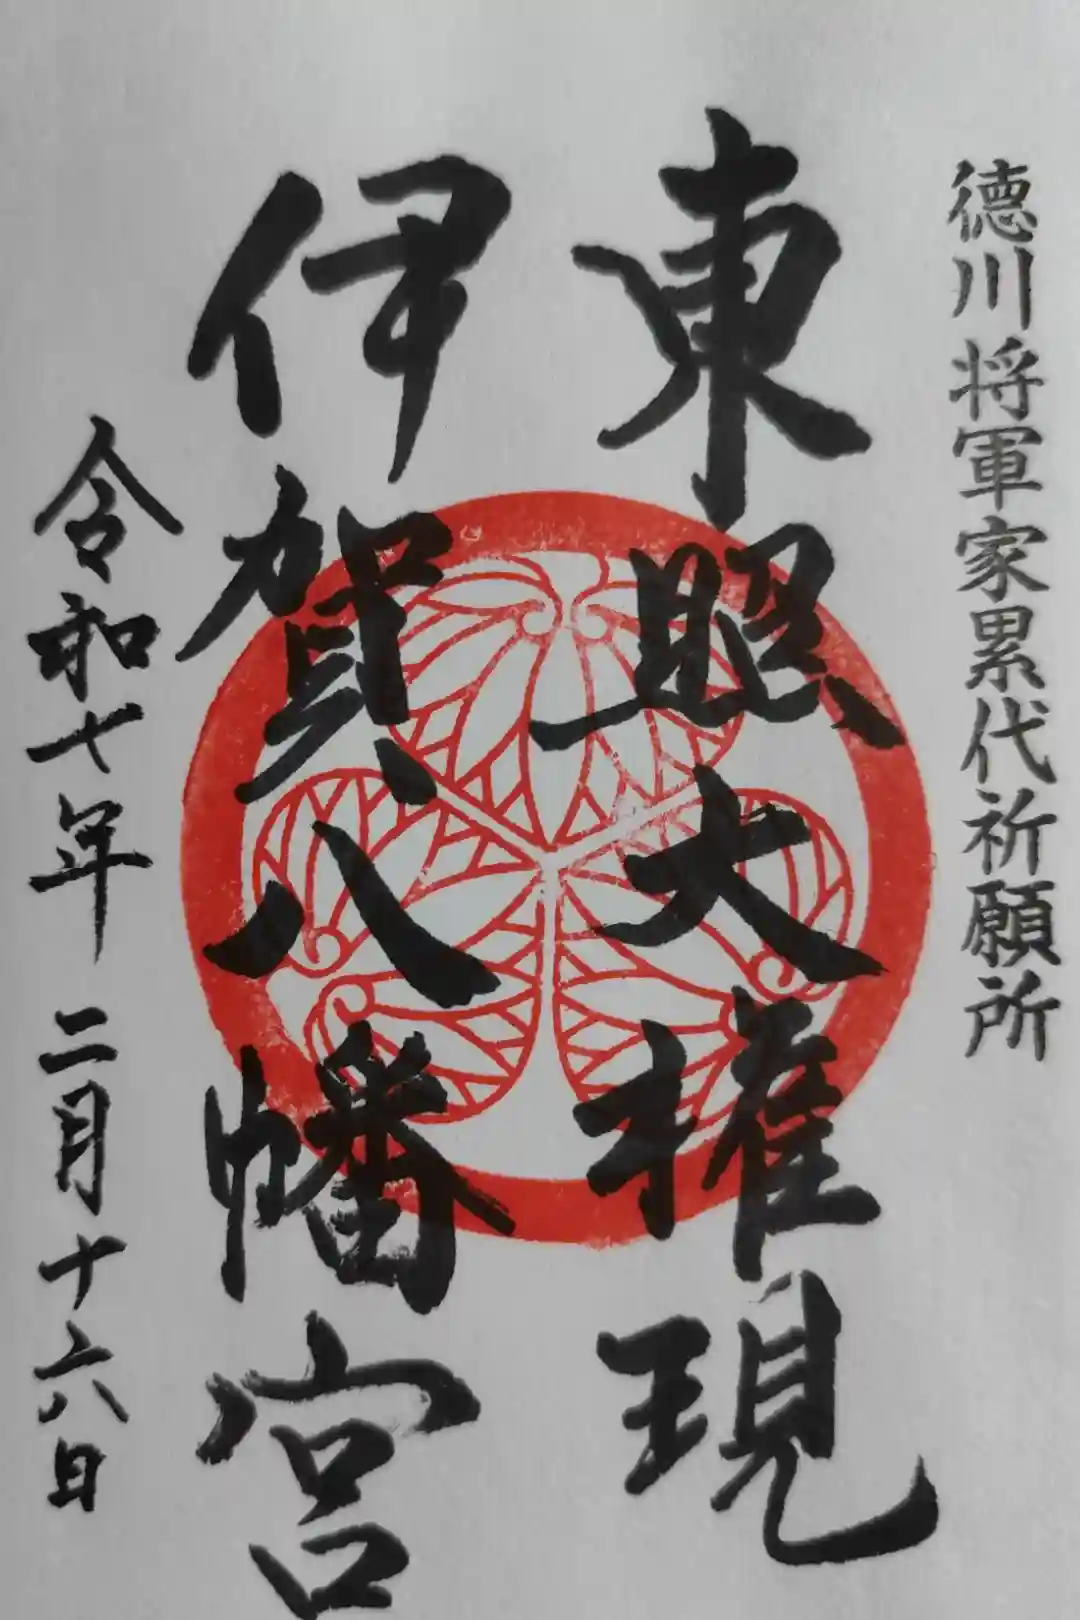 徳川将軍家累代祈願所
東照大権現
伊賀八幡宮
令和七年 二月十六日